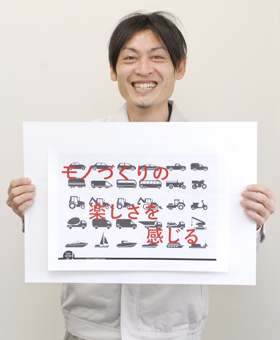 モノづくりの
楽しさを
感じる